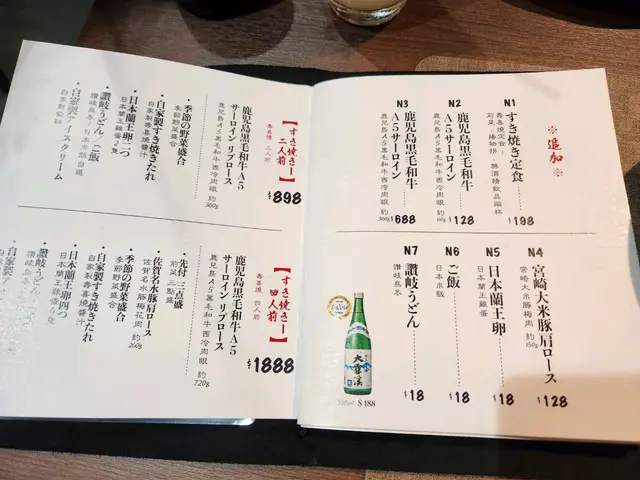 ※追加※
N1
すき焼き定食
壽喜燒定食：
$198
N2
鹿児島黒毛和牛
A5サーロイン
鹿兒島A5黑毛和牛西冷肉眼
約60g
$128
N3
鹿児島黒毛和牛
A5サーロイン
鹿兒島A5黑毛和牛西冷肉眼
約360g
$688
N4
宮崎大米豚肩ロース
宮崎大米豚梅肉
約150g
$128
N5
日本蘭王卵
日本蘭王雞蛋
$18
N6
ご飯
日本米飯
$18
N7
讃岐うどん
讃岐烏冬
$18
大雪渓
300ml
$188
【すき焼き】
二人前
壽喜燒 二人前
$898
鹿児島黒毛和牛A5
サーロイン リブロース
鹿兒島A5黑毛和牛西冷肉眼
約360g
・季節野菜盛合
季節野菜盛合
・自家製すき焼きたれ
自家製壽喜燒醬汁
・日本蘭王卵二つ
日本蘭王雞蛋2隻
・讃岐うどん/ご飯
・自家製アイスクリーム
【すき焼き】
四人前
壽喜燒 四人前
$1888
鹿児島黒毛和牛A5
サーロイン リブロース
鹿兒島A5黑毛和牛西冷肉眼
約720g
・先付 三点盛
前菜 三點盛
・佐賀名水豚肩ロース
佐賀名水豚梅花肉
約260g
・季節の野菜盛合
季節野菜盛合
・自家製すき焼きたれ
自家製壽喜燒醬汁
・日本蘭王卵四つ
日本蘭王雞蛋
・讃岐うどん
・自家製